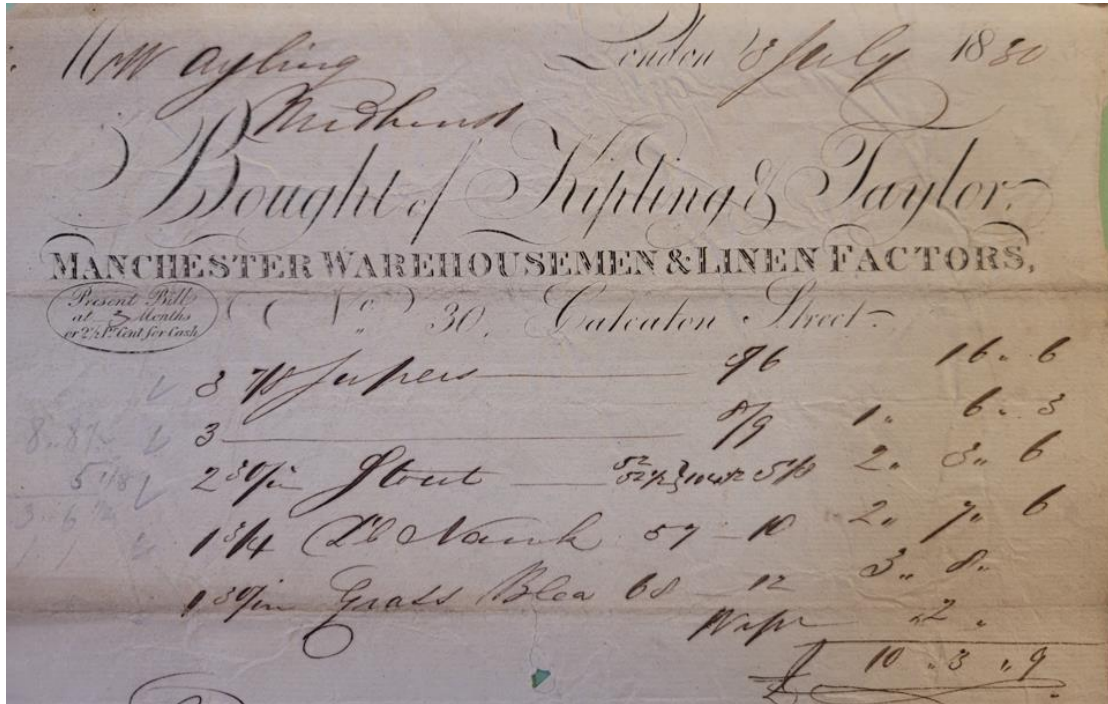 Mr W Ayling London 8 July 1830
Midhurst
Bought of Kipling & Taylor.
MANCHESTER WAREHOUSEMEN & LINEN FACTORS,
Present Bill
at 2 Months
or 2½ Pr. Cent for Cash
No 30, Gutter Street
3 7/8 Supers 5/6 16 " 6
3 8/9 1 " 6 " 3
2 30/in Stout 52 52 1/2 } 104 1/2 5 2 " 3 " 6
1 3/4 57 10 2 " 7 " 6
1 30/in Grass Blea 68 12 3 " 8 "
Wrapr 2 "
£ 10 " 3 " 9